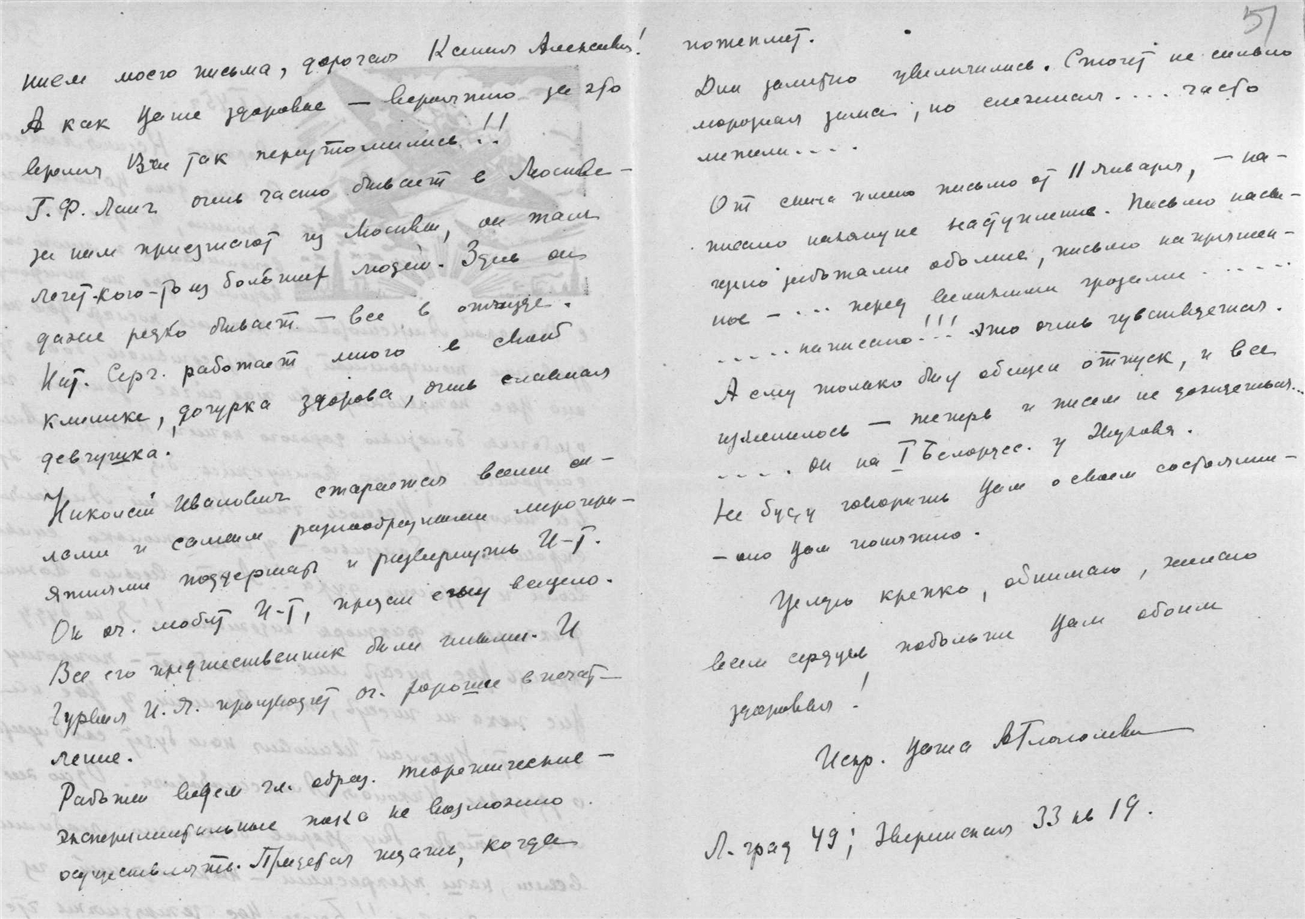 нием моего письма, дорогая Ксения Алексеевна!
А как Ваше здоровье — вероятно за это
время Вы так переутомились!!
Г.Ф. Ланг очень часто бывает в Москве —
за ним приезжают из Москвы, он там
лечит кого-то из больших людей. Здесь он
даже редко бывает — все в отъезде.
Сер. работает много в своей
клинике, дочурка здорова, очень славная
девчушка.
Николай Иванович старается всеми си-
лами и самыми разнообразными мероприя-
тиями поддержать и развернуть И-Т.
Он оч. любит И-Т, предан ему всецело.
Все его предшественники были гнилыми. И
Гуревич И.Я. производит оч. хорошее впечат-
ление.
Работы ведем гл. образ. теоретические —
экспериментальные пока не возможно
осуществлять. Придется ждать, когда
потеплеет.
Дни заметно увеличились. Стоит не сильно
морозная зима, но снежная .... часто
метели....
От сына имею письмо от 11 января, — на-
писано накануне наступления. Письмо насы-
щено заботами обо мне, письмо напряжен-
ное — ... перед великими грозами ......
..... написано!!! это очень чувствуется.
А ему только был обещан отпуск, и все
изменилось — теперь и писем не дождешься...
.... он на I Белорусс. у Жукова.
Не буду говорить Вам о своем состоянии —
— оно Вам понятно.
Целую крепко, обнимаю, желаю
всем сердцем побольше Вам обоим
здоровья!
Искр. Ваша
Л-град 49; Зверинская 33 кв 19.
51